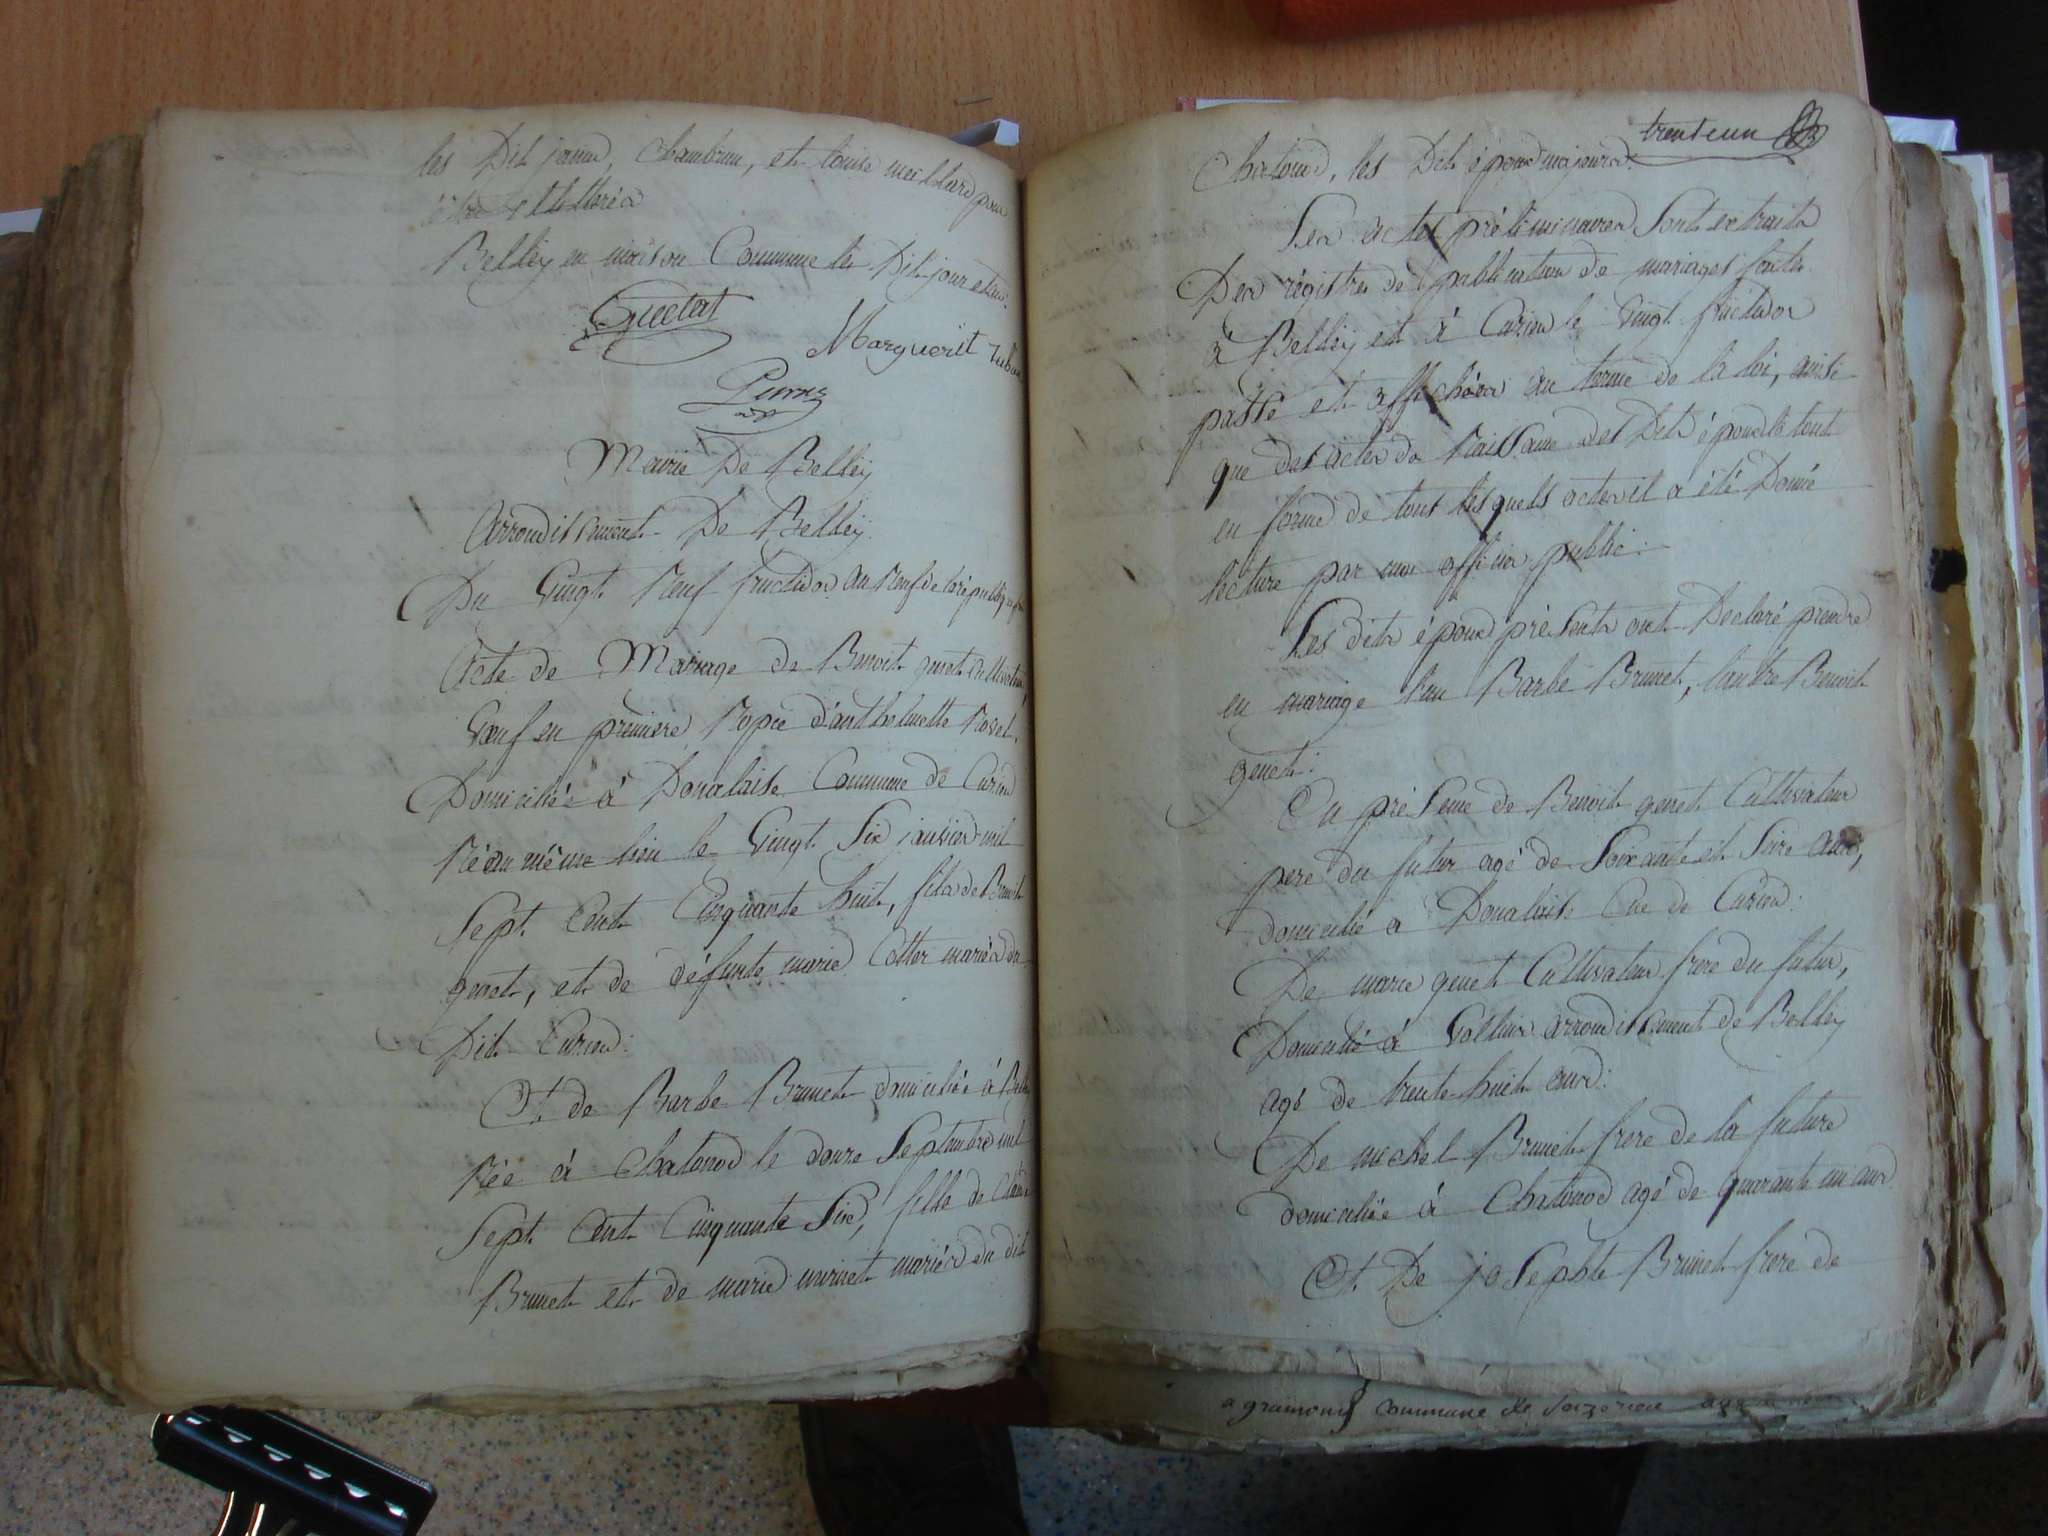 les Dit janne, Chambrun, et louise meillard pour
être illitterés
Belley en maison Commune les Dit jour et an.
Guettat
Marguerit
Mairie De Belley
Arrondissement De Belley.
Du Vingt Neuf fructidor an Neuf de la république
Acte de Mariage de Benoit genet Cultivateur
Veuf en premiere Nopce d'anthelmette Novel.
Domiciliée à Donalaise Commune de Curson
Né au même lieu le Vingt Six janvier mil
Sept Cent Cinquante huit, fils de Benoit
genet, et de défunte marie Cotter mariés du
Dit Curson:
Et de Barbe Brunet domiciliée à Belley
Née à Chatonod le douze Septembre mil
Sept Cent Cinquante Six, fille de Claude
Brunet et de marie murinet mariés du dit
trenteun
Chatonod, les Dits époux majeurs.
Les actes préliminaires Sont extraits
Des régistres de publication de mariages faite
à Belley et à Curson le Vingt fructidor
passé et affichées au terme de la loi, ainsi
que des actes de Naissance des Dits époux le tout
en forme de tous lesquels actes il a été Donné
lecture par moi officier public:
Les dits époux présents ont Declaré prendre
en mariage l'un Barbe Brunet, l'autre Benoit
genet:
En présence de Benoit genet Cultivateur
pere du futur agé de Soixante et Seize ans,
domicilié a Donalaise Cne de Curson:
De marie genet Cultivateur frere du futur,
Domicilié à Vollien arrondissement de Belley
agé de trente huit ans:
De michel Brunet frere de la future
domiciliée à Chatonod agé de quarante un ans
Et De josephte Brunet frere de
a gramont commune de